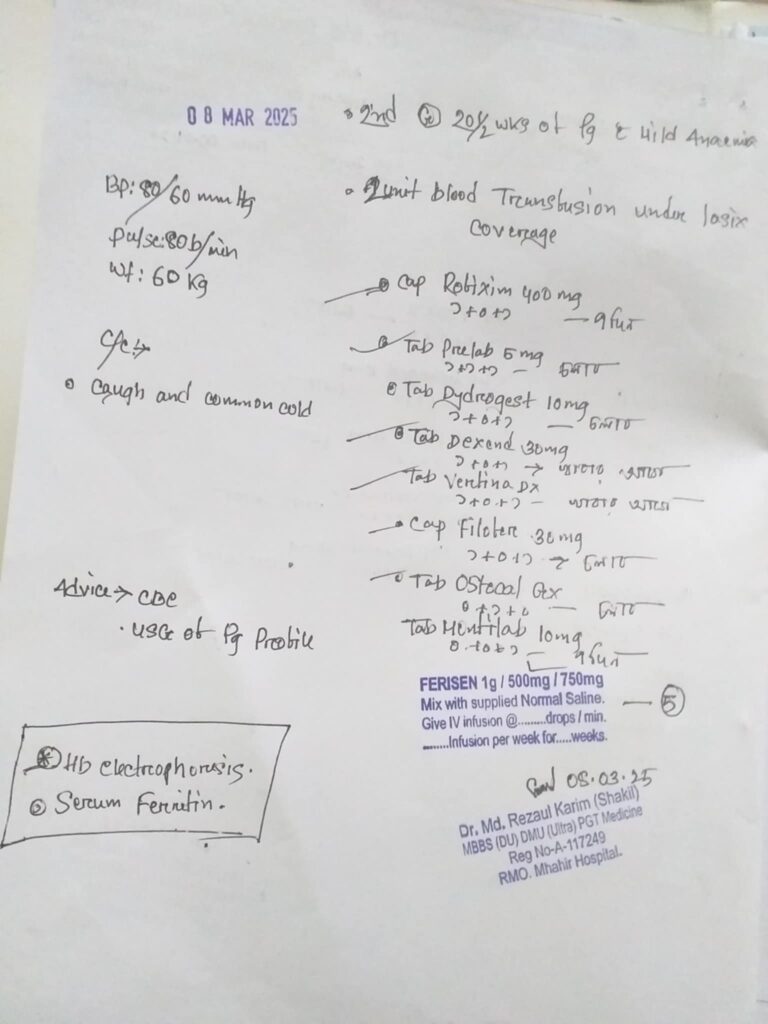 08 MAR 2025
• 2nd G 20½ wks of Pg c Mild Anaemia
Bp: 80/60 mm Hg
pulse: 80 b/min
wt: 60 Kg
• 2 unit blood Transfusion under lasix
coverage
C/C:→
• Caugh and common cold
• Cap Robixim 400 mg
১+০+১ — ৭ দিন
• Tab Prelab 5 mg
১+১+১ — চলবে
• Tab Dydrogest 10 mg
১+০+১ — চলবে
• Tab Dexend 30 mg
১+০+১ → খাবার আগে
Tab Vertina DX
১+০+১ — খাবার আগে
• Cap Filofer 30 mg
১+০+১ → চলবে
• Tab Ostocal Gx
০+১+০ — চলবে
Tab Montilab 10 mg
০+০+১ — ৭ দিন
Advice → CBC
• USG of Pg Profile
FERISEN 1g / 500mg / 750mg
Mix with supplied Normal Saline. — 5
Give IV infusion @.........drops / min.
........Infusion per week for.....weeks.
Hb electrophorosis.
Serum Ferritin.
08.03.25
Dr. Md. Rezaul Karim (Shakil)
MBBS (DU) DMU (Ultra) PGT Medicine
Reg No-A-117249
RMO. Mhahir Hospital.